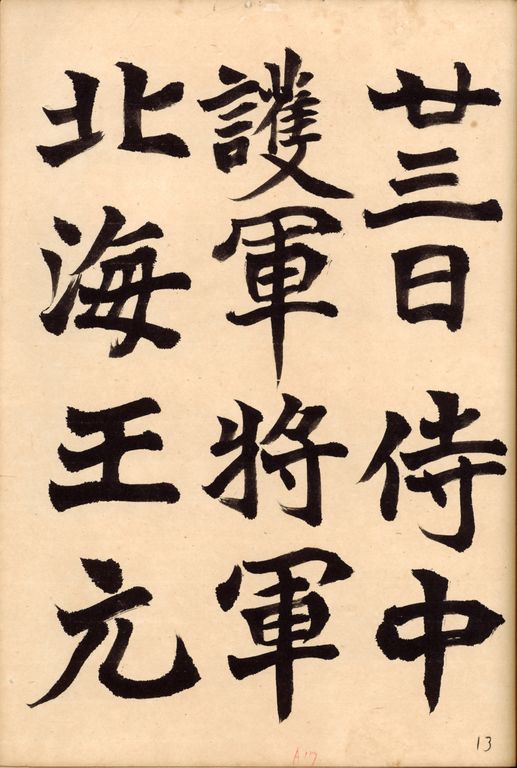 廿三日侍中
護軍將軍
北海王元
13